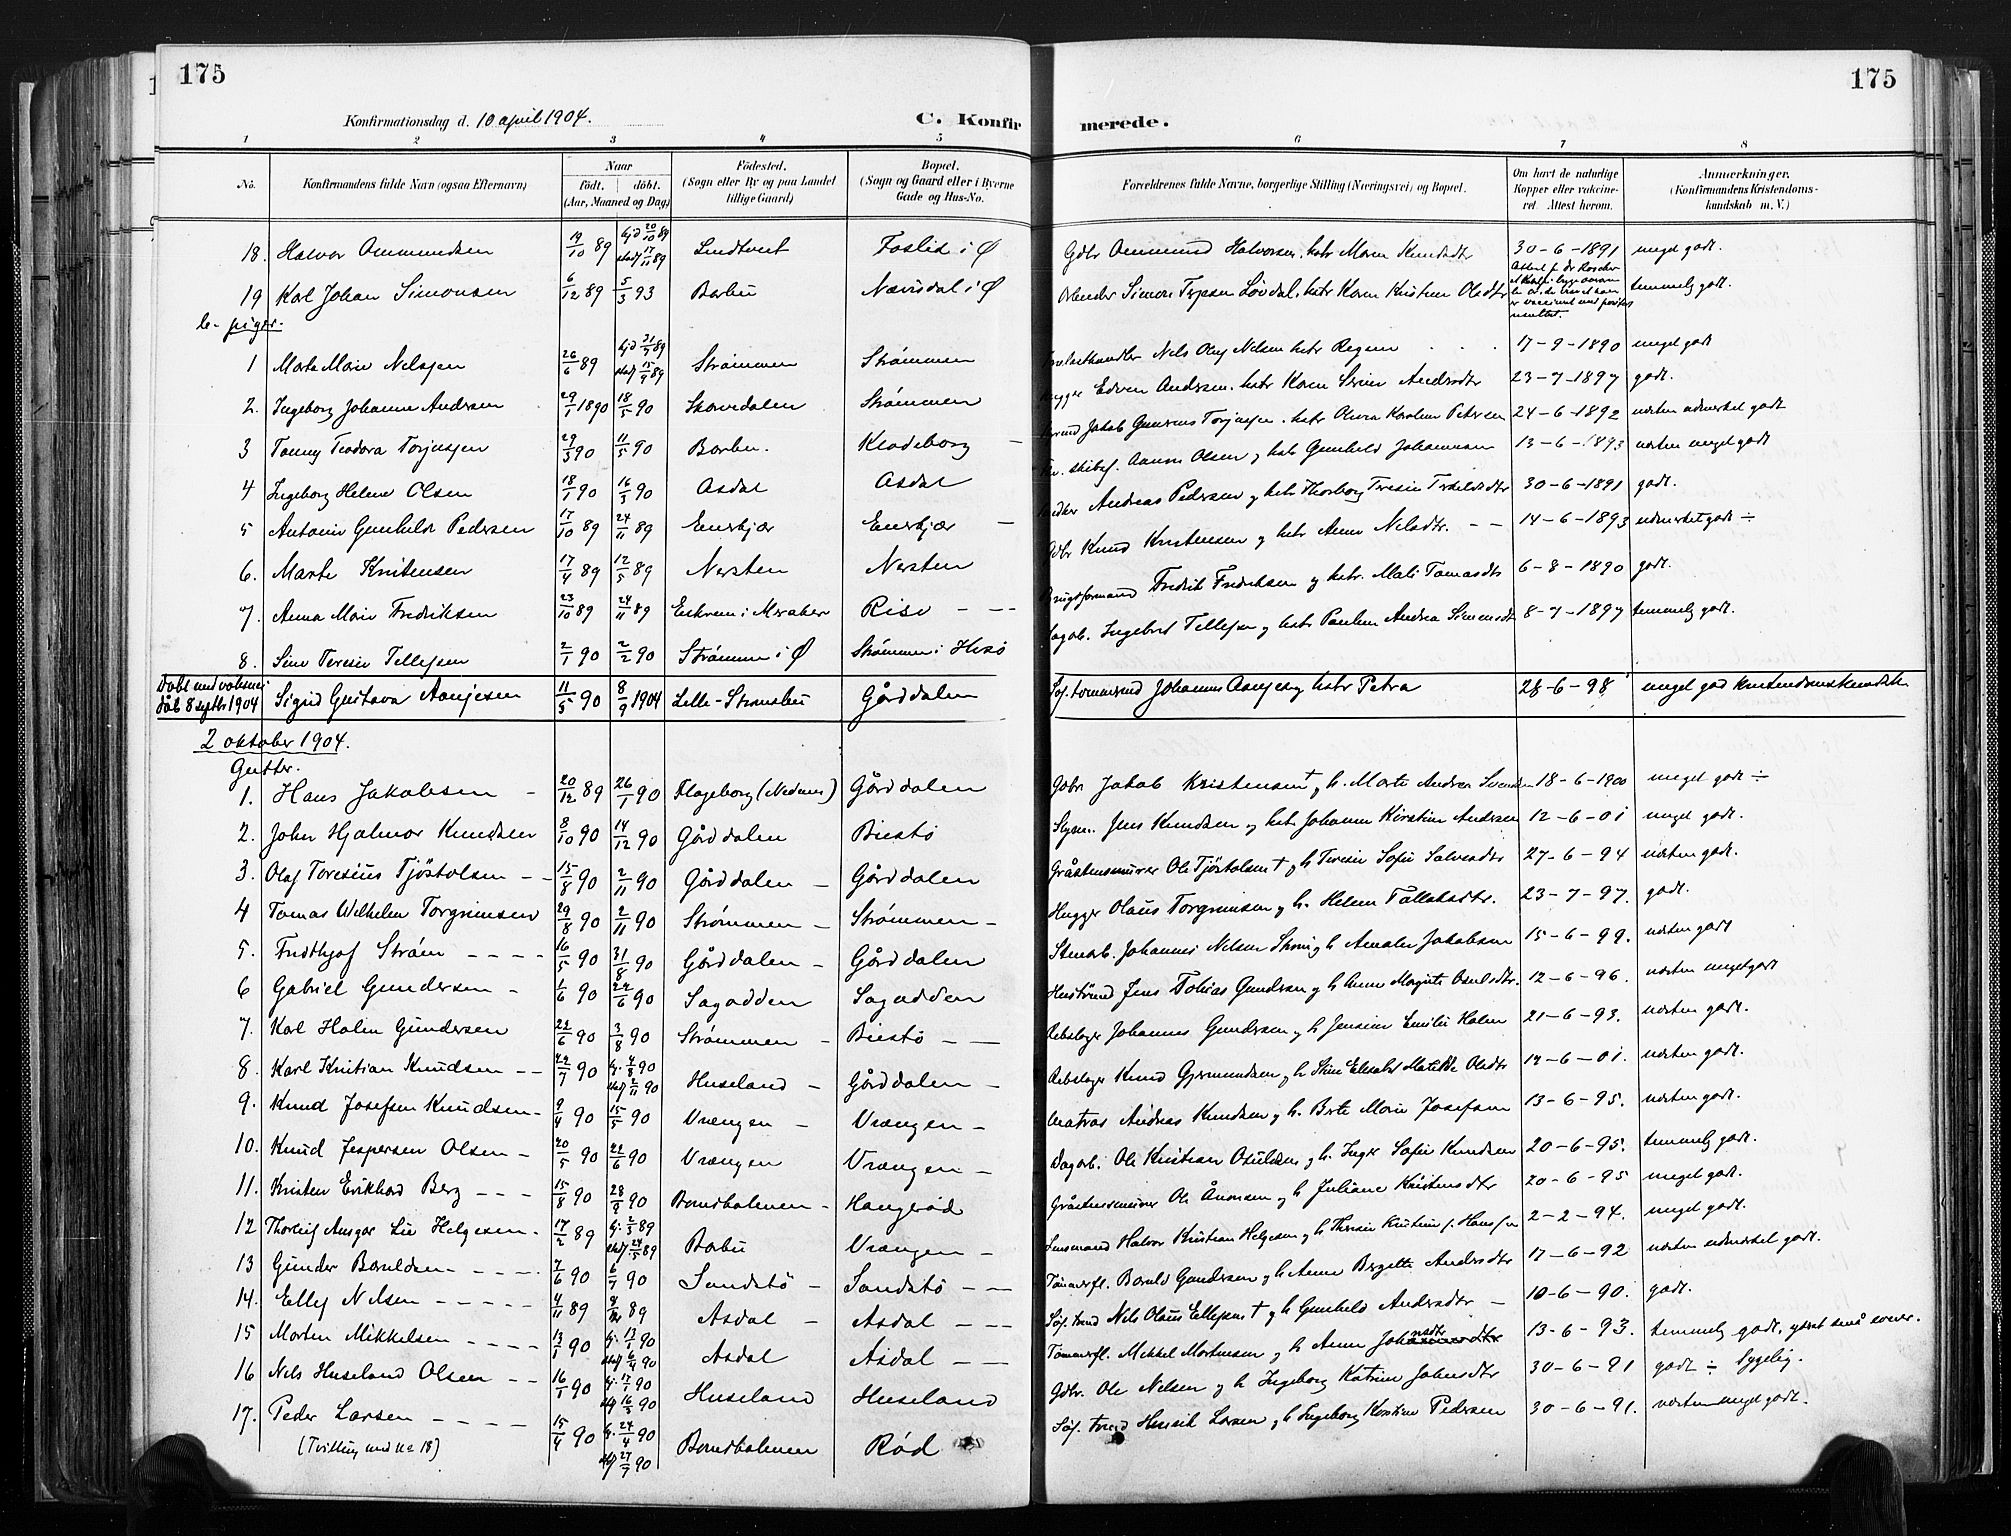 175
175
Konfirmationsdag d. 10 april 1904.
C. Konfirmerede.
1 2 3 4 5 6 7 8
No. Konfirmandens fulde Navn (ogsaa Efternavn) Naar födt. döbt. (Aar, Maaned og Dag) Födested. (Sogn eller By og paa Landet tillige Gaard) Bopæl. (Sogn og Gaard eller i Byerne Gade og Hus-No. Forældrenes fulde Navne, borgerlige Stilling (Næringsvei) og Bopæl. Om havt de naturlige Kopper eller vaccineret. Attest herom. Anmærkninger. (Konfirmandens Kristendomskundskab m. V.)
18. Halvor Ommundsen 19/10 89 hj d 20/10 89 stadf 17/11 89 Lindtveit Foslid i Ø Gdbr Ommund Halvorsen, hstr Maren Knudsdtr 30-6-1891 meget godt.
19 Karl Johan Simonsen 6/12 89 5/3 93 Barbu Nævisdal i Ø Arbeider Simon Løvdal, hstr Karen Kristine Olsdtr temmelig godt.
b- piger.
1 Marta Marie Nelsen 26/6 89 hj d 21/7 89 stadf 15/9 89 Strømmen Strømmen Nels Olaf Nelsen hstr Regine 17-9-1890 meget godt
2. Ingeborg Johanne Andersen 29/1 1890 18/5 90 Skarvedalen Strømmen Hugger Edvin Andersen, hstr Karen Serine Andersdtr 23-7-1897 godt.
3 Tomny Teodora Torjusen 29/3 90 11/5 90 Barbu. Klodeborg Jakob Gunerius Torjusen, hstr Olivia Karoline Petersen 24-6-1892 næsten udmerket godt
4 Ingeborg Helene Olsen 18/1 90 16/5 90 Asdal Asdal skibsf. Aanon Olsen og hstr Gunhild Johannsen 13-6-1893 næsten meget godt
5 Antonie Gunhilde Pedersen 17/10 89 24/11 89 Enerkjær Enerkjær Andreas Pedersen og hstr Thorborg Teresie Terkelsdtr 30-6-1891 godt.
6. Marte Knutensen 17/4 89 12/5 89 Nersten Nersten Gdbr Knud Kristensen og hstr Anne Nelsdtr. 14-6-1893 udmerket godt ÷
7. Anna Marie Fredriksen 23/10 89 24/11 89 Eikrem i Meraker Risø Brugsformand Fredrik Fredriksen og hstr. Mali Tomasdtr 6-8-1890 godt.
8. Sine Teresie Tellefsen 2/1 90 2/2 90 Strømmen i Ø Strømmen i Hisø Dagarb. Ingebret Tellefsen og hstr Pauline Andrea Simonsdtr 8-7-1897 temmelig godt.
Døbt med voksnes dåb 8 septbr 1904 Sigrid Gustava Aanjesen 11/5 90 8/9 1904 Lille-Strømsbu Gårddalen Søf. tømmermd Johannes Aanjesen hstr Petra 28-6-98 meget god kristendomskundsk
2 oktober 1904.
Gutter.
1. Hans Jakobsen 20/12 89 26/1 90 Flageborg (Nedenes) Gårddalen Gdbr Jakob Kristensen † og h. Marte Andrea Svendsen 18-6-1900 meget godt ÷
2. John Hjalmar Knudsen 8/10 90 14/12 90 Gårddalen Biestø Styrm. Jens Knudsen og hstr Johanne Kirstine Andersen 12-6-01 meget godt.
3. Olaf Toresius Tjøstolsen 15/8 90 2/11 90 Gårddalen Gårddalen Gråstensmurer Ole Tjøstolsen † og h Teresie Sofie Salvesdtr 27-6-94 næsten godt.
4 Tomas Wilhelm Torgrimsen 29/8 90 2/11 90 Strømmen Strømmen Hugger Olaus Torgrimsen og h. Helene Tallaksdtr. 23-7-97 godt.
5. Fridthjof Strøm 16/5 90 31/8 90 Gårddalen Gårddalen Stenarb. Johannes Nelsen Strøm og h Amalie Jakobsen 15-6-99. næsten godt
6 Gabriel Gundersen 1/6 90 22/6 90 Sagodden Sagodden Hustømd Jens Tobias Gundersen og h Anne Margrete Osulsdtr. 12-6-96. næsten meget godt
7. Karl Holm Gundersen 22/6 90 3/8 90 Strømmen Biestø Rebslager Johannes Gundersen og h Jensine Emilie Holm 21-6-93. næsten godt.
8. Karl Kristian Knudsen 22/7 90 hj. 4/8 90 stadf 2/11 90 Huseland Gårddalen Rebslager Knud Gjermundsen og h Stine Elisabet Matilde Olsdtr 14-6-01. næsten godt.
9. Knud Josefsen Knudsen 9/4 90 15/5 90 Vrængen Vrængen Matros Andreas Knudsen og h. Berte Marie Josefsen 13-6-95. næsten godt.
10. Knud Jespersen Olsen 20/5 90 22/6 90 Vrængen Vrængen Dagarb. Ole Kristian Osulsen og h. Inger Sofie Knudsen 20-6-95. temmelig godt.
11. Kristen Erikhard Berg 15/8 90 28/9 90 Bomsholmen Hangerød Gråstensmurer Ole Ånonsen og h Juliane Kristensdtr 20-6-95 meget godt.
12 Thorleif Ansgar Lie Helgesen 17/2 89 hj. 2/3 89 stadf 24/5 89 Barbu Vrængen Lensmand Halvor Kristian Helgesen og h Therese Kristine f. Hansen 2-2-94. meget godt.
13 Gunder Baruldsen 7/6 90 6/7 90 Sandstø Sandstø Tømmerfl. Baruld Gundersen og h Anne Birgitte Andersdtr 17-6-92 næsten udmerket godt.
14. Ellef Nelsen 4/11 89 89 Asdal Asdal Søf. tømd Nels Olaus Ellefsen † og h Gunhild Andersdtr 10-6-90. godt.
15 Morten Mikkelsen 13/1 90 hj. 13/1 90 stadf 6/4 90 Asdal Asdal Tømmerfl. Mikkel Mortensen og h Anne Johnsdtr 13-6-93. temmelig godt, ydret små evner.
16 Nels Huseland Olsen 16/1 90 hj. 17/1 90 stadf 16/5 90 Huseland Huseland Gdbr. Ole Nelsen og h Ingeborg Katrine Johnsdtr 30-6-91 godt ÷ sygelig.
17. Peder Larsen 15/4 90 hj. 24/4 90 stadf 27/7 90 Bomsholmen Rød Søf. tømd Henrik Larsen og h Ingeborg Kirstine Pedersen 30-6-91. næsten meget godt.
(Tvilling med no 18)